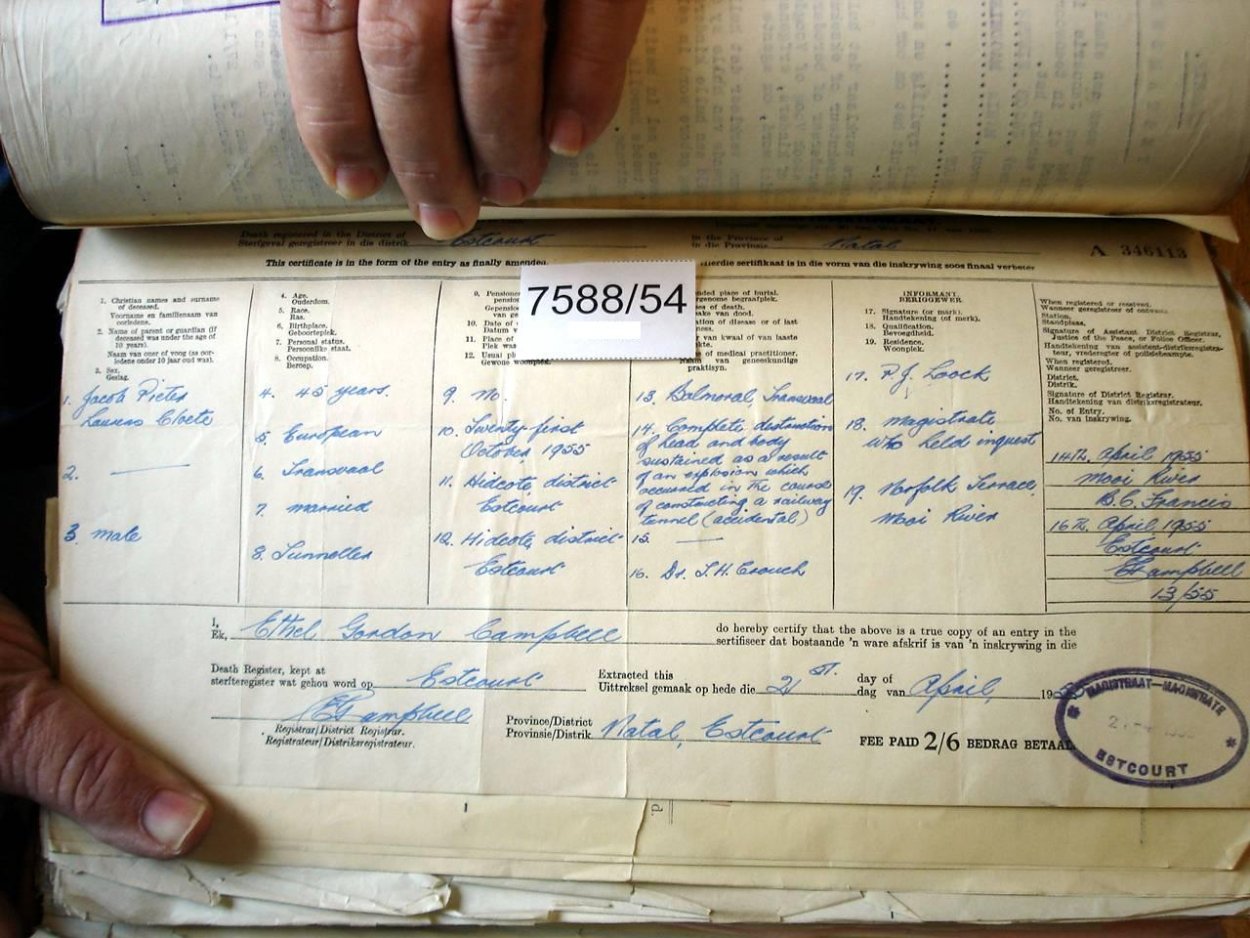 Death registered in the District of
Sterfgeval geregistreer in die distrik Estcourt
in the Province of
in die Provinsie Natal
A 346113
This certificate is in the form of the entry as finally amended.
Hierdie sertifikaat is in die vorm van die inskrywing soos finaal verbeter
7588/54
1. Christian names and surname
of deceased.
Voorname en familienaam van
oorledene.
2. Name of parent or guardian (if
deceased was under the age of
10 years).
Naam van ouer of voog (as oor-
ledene onder 10 jaar oud was).
3. Sex.
Geslag.
1. Jacob Pieter
Laurens Cloete
2. —
3. male
4. Age.
Ouderdom.
5. Race.
Ras.
6. Birthplace.
Geboorteplek.
7. Personal status.
Persoonlike staat.
8. Occupation.
Beroep.
4. 45 years.
5. European
6. Transvaal
7. married
8. Tunneller
9. Pensioner
10. Date of
Datum
11. Place of
Plek
12. Usual
Gewone woonplek.
9. No.
10. Twenty first
October 1955
11. Hidcote district
Estcourt
12. Hidcote, district
Estcourt
place of burial.
begraafplek.
of death.
van dood.
of disease or of last
van kwaal of van laaste
of medical practitioner.
van geneeskundige
praktisyn.
13. Balmoral Transvaal
14. Complete destruction
of head and body
sustained as a result
of an explosion which
occurred in the course
of constructing a railway
tunnel (accidental)
15. —
16. Dr. T. H. Crouch
INFORMANT.
BERIGGEWER.
17. Signature (or mark).
Handtekening (of merk).
18. Qualification.
Bevoegdheid.
19. Residence.
Woonplek.
17. P. J. Loock
18. Magistrate
who held inquest
19. Norfolk Terrace,
Mooi River
When registered or received.
Wanneer geregistreer of ontvang.
Station.
Standplaas.
Signature of Assistant District Registrar,
Justice of the Peace, or Police Officer.
Handtekening van assistent-distriksregistra-
teur, vrederegter of polisiebeampte.
When registered.
Wanneer geregistreer.
District.
Distrik.
Signature of District Registrar.
Handtekening van distriksregistrateur.
No. of Entry.
No. van inskrywing.
14th. April 1955
Mooi River
B.C. Francis
16th. April 1955
Estcourt
EGCampbell
13/55
I,
Ek, Ethel Gordon Campbell
do hereby certify that the above is a true copy of an entry in the
sertifiseer dat bostaande 'n ware afskrif is van 'n inskrywing in die
Death Register, kept at
sterfteregister wat gehou word op Estcourt
Extracted this
Uittreksel gemaak op hede die 21st.
day of
dag van April 19
EGCampbell
Registrar/District Registrar.
Registrateur/Distriksregistrateur.
Province/District
Provinsie/Distrik. Natal, Estcourt
FEE PAID 2/6 BEDRAG BETAAL
MAGISTRAAT—MAGISTRATE
ESTCOURT